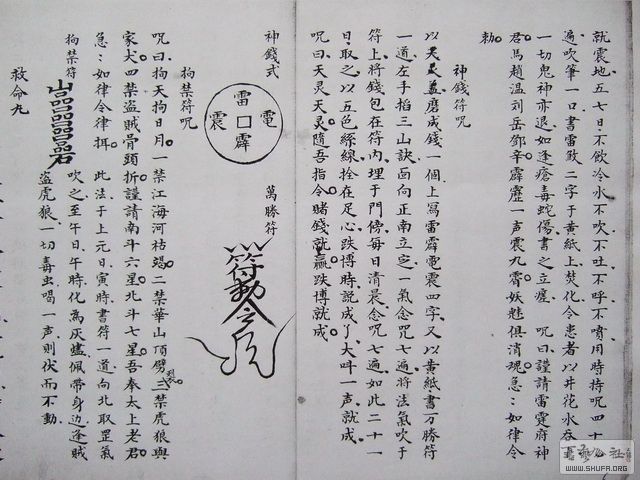 就震地五七日不飲冷水不吹不吐不呼不噴用時持呪四十
遍吹筆一口書雷敕二字于黃紙上焚化令患者以井花水吞
一切鬼神亦退如逢瘡毒蛇傷書之立瘥 呪曰謹請雷霆府神
君馬趙溫刘岳鄧辛霹靂一声震九霄妖魅俱消魂急〻如律令
勅
神錢符呪
磨成錢一個上寫雷霹電震四字又以黃紙書万勝符
一道左手掐三山訣面向正南立定一氣念咒七遍將法氣吹于
符上將錢包在符內埋于門傍每日清晨念呪七遍如此二十一
日取之以五色絲線拴在足心跌博時説成了大呌一声就成
呪曰天灵天灵隨吾指令賭錢就贏跌博就成
神錢式
雷 電 霹 震
萬勝符
拘禁符呪
呪曰拘天拘日月一禁江海河枯竭二禁華山頂劈裂三禁虎狼與
家犬四禁盜賊骨頭折謹請南斗六星北斗七星吾奉太上老君
急〻如律令律拜 此法于上元日寅時書符一道向北取罡氣
拘禁符 吹之至午日午時化為灰盛佩帶身边逢賊
盜虎狼一切毒虫喝一声則伏而不動
救命九
WWW.SHUFA.ORG